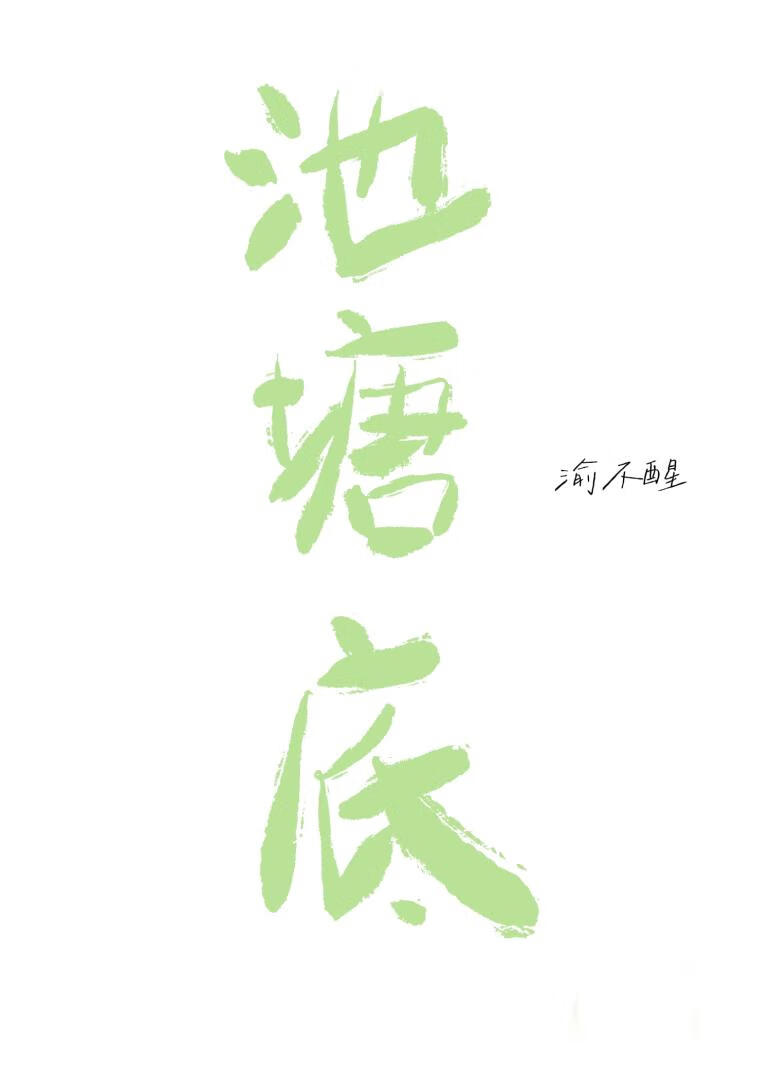 池塘底
渝不醒